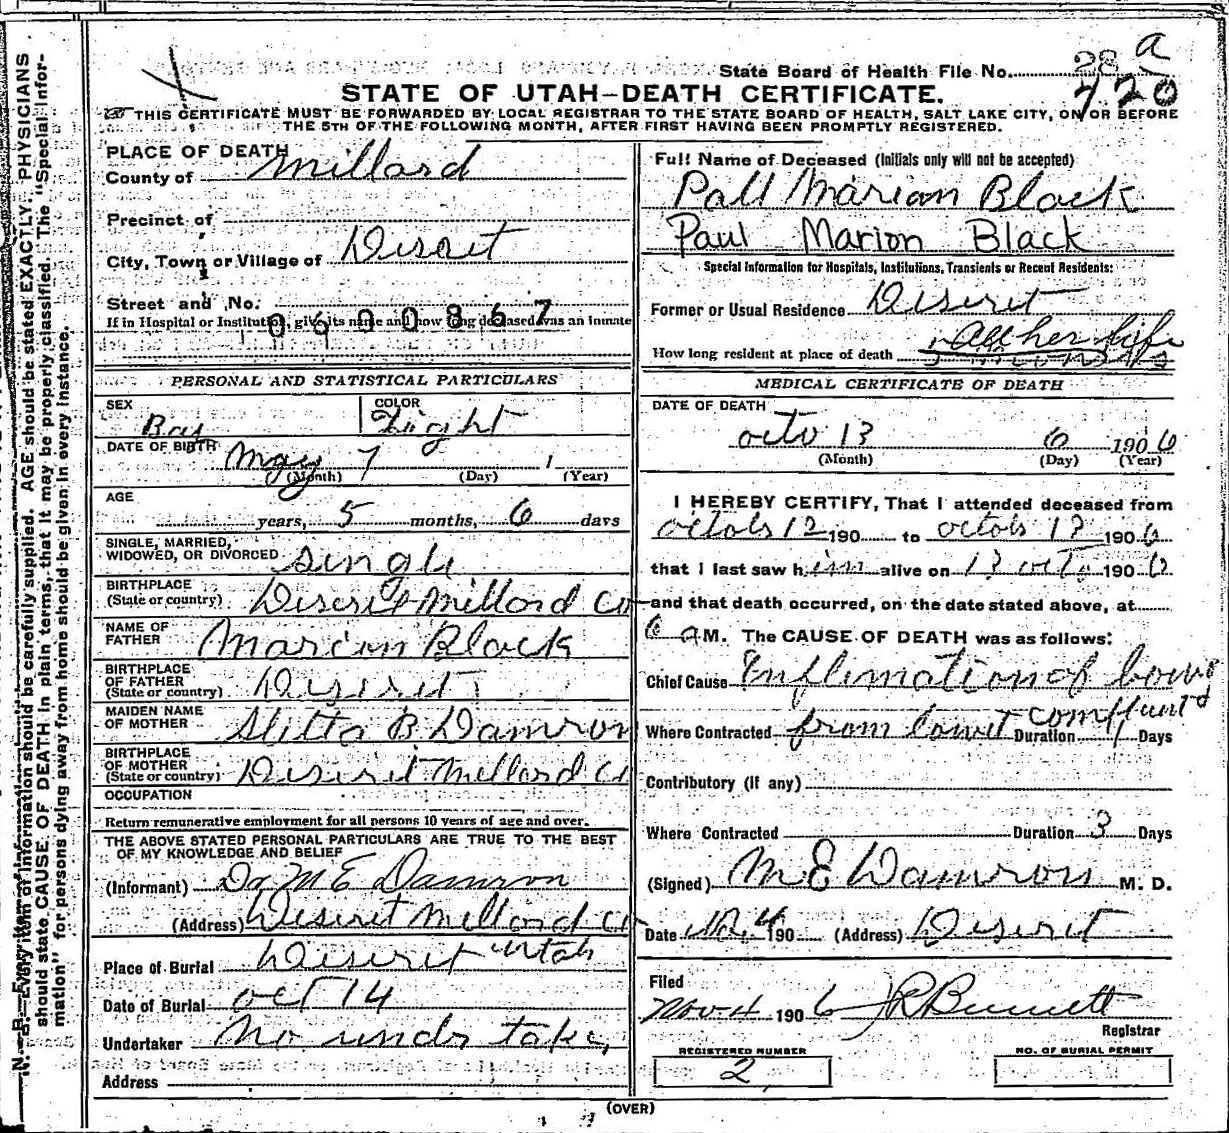 State Board of Health File No. 28 a
720
STATE OF UTAH—DEATH CERTIFICATE.
THIS CERTIFICATE MUST BE FORWARDED BY LOCAL REGISTRAR TO THE STATE BOARD OF HEALTH, SALT LAKE CITY, ON OR BEFORE
THE 5TH OF THE FOLLOWING MONTH, AFTER FIRST HAVING BEEN PROMPTLY REGISTERED.
N. B.—Every item of information should be carefully supplied. AGE should be stated EXACTLY. PHYSICIANS
should state CAUSE OF DEATH in plain terms, that it may be properly classified. The "Special Infor-
mation" for persons dying away from home should be given in every instance.
PLACE OF DEATH
County of Millard
Precinct of
City, Town or Village of Diserit
Street and No.
If in Hospital or Institution, give its name and how long deceased was an inmate
0600867
PERSONAL AND STATISTICAL PARTICULARS
SEX Boy
COLOR Light
DATE OF BIRTH May 7 1
(Month) (Day) (Year)
AGE
years, 5 months, 6 days
SINGLE, MARRIED,
WIDOWED, OR DIVORCED single
BIRTHPLACE
(State or country) Diserit Millord Co
NAME OF
FATHER Marion Black
BIRTHPLACE
OF FATHER
(State or country) Diserit
MAIDEN NAME
OF MOTHER B Damron
BIRTHPLACE
OF MOTHER
(State or country) Diserit Millord Co
OCCUPATION
Return remunerative employment for all persons 10 years of age and over.
THE ABOVE STATED PERSONAL PARTICULARS ARE TRUE TO THE BEST
OF MY KNOWLEDGE AND BELIEF
(Informant) Dr M E Damron
(Address) Diserit Millord Co
Place of Burial Diserit Utah
Date of Burial Oct 14
Undertaker No under taker
Address
Full Name of Deceased (Initials only will not be accepted)
Pall Marion Black
Paul Marion Black
Special Information for Hospitals, Institutions, Transients or Recent Residents:
Former or Usual Residence Diserit
How long resident at place of death All her life
MEDICAL CERTIFICATE OF DEATH
DATE OF DEATH
octo 13 6 1906
(Month) (Day) (Year)
I HEREBY CERTIFY, That I attended deceased from
octob 12 190 to octob 13 1906
that I last saw him alive on 13 octo 1906
and that death occurred, on the date stated above, at
6 a M. The CAUSE OF DEATH was as follows:
Chief Cause Inflimation of bowe
Where Contracted from Duration Days
Contributory (if any)
Where Contracted Duration 3 Days
(Signed) M E Damron M. D.
Date Nov 4 190 (Address) Diserit
Filed
Nov 4 1906 J R Bennett
Registrar
REGISTERED NUMBER
2
NO. OF BURIAL PERMIT
(OVER)